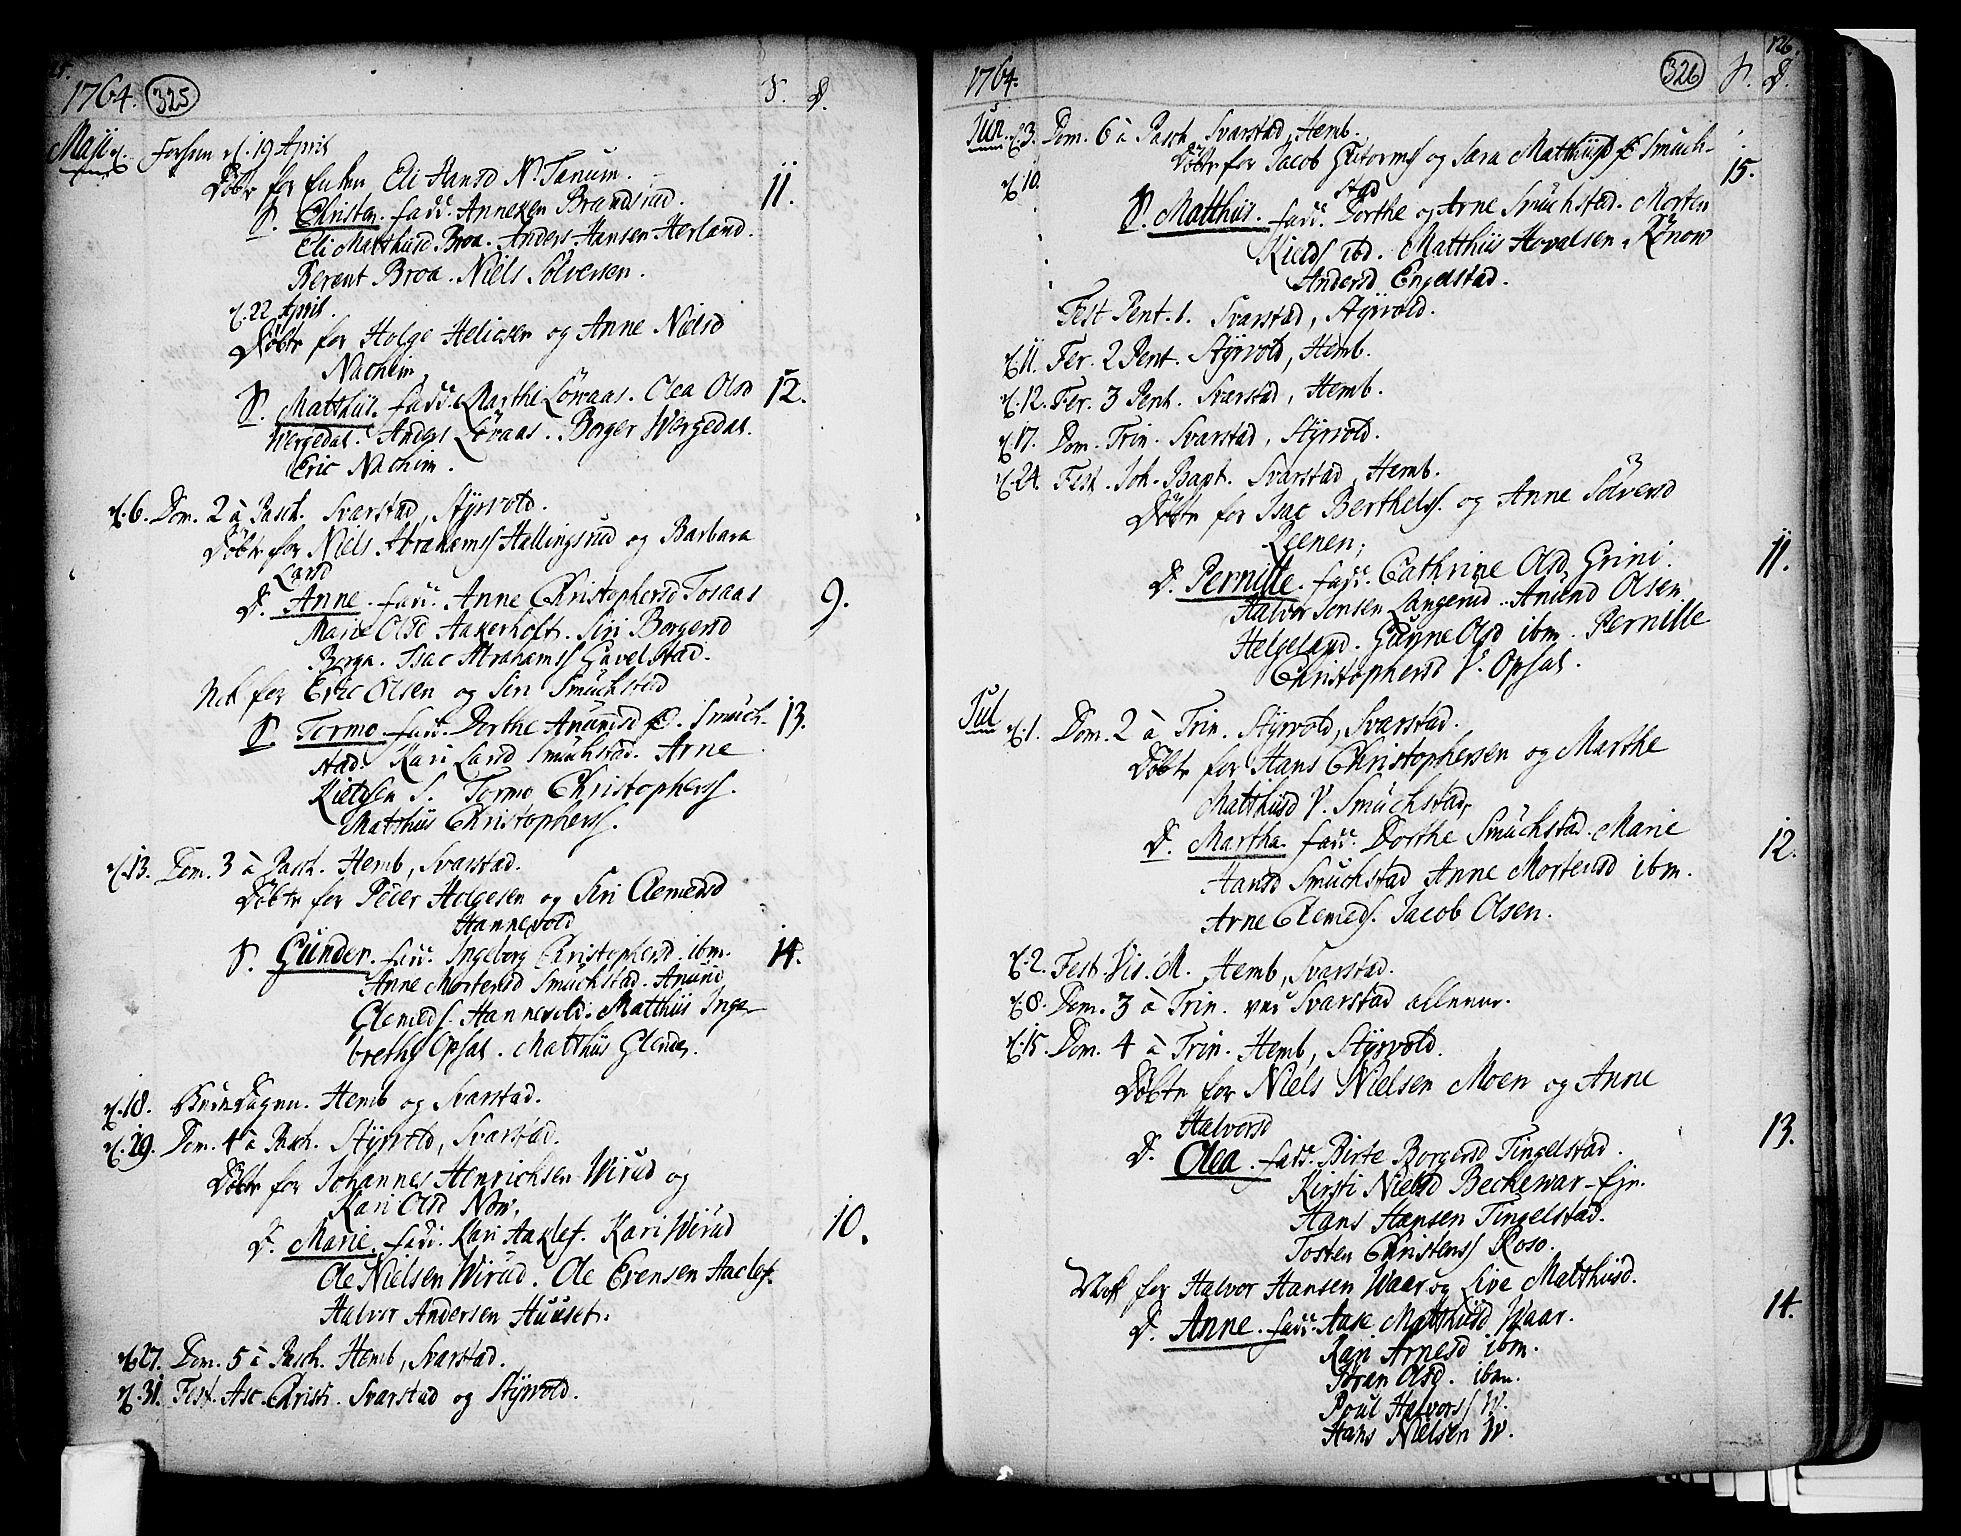 1764. 325 S. D.
Maji d. Forhen d. 19 April
Döbte for Enken Eli Hansd N. Tanum.
S. Christen. fadd. Anneken Brandstad. 11.
Eli Matthisd Broa. Anders Hansen Herland.
Berent Broa. Niels Sölversen.
d. 22 April.
Döbte for Holge Helicsen og Anne Nielsd
Nacheim,
S. Matthiis. fadd. Marthe Löwaas. Olea Olsd 12.
Wergedal. Anders Löwaas. Borger Wergedal.
Eric Nacheim.
d. 6. Dom. 2 à Pasch. Svarstad, Styrvold.
Döbte for Niels Abrahamss Hallingsrud og Barbara
Larsd
D. Anne. fadd. Anne Christophersd Fosaas 9.
Marie Olsd Aakerholt. Siri Borgersd
Berga. Isac Abrahamss Gavelstad.
Nok for Eric Olsen og Siri Smuchstad
S. Tormo fadd. Dorthe Anunsd . Smuch- 13.
stad. Kari Larsd Smuchstad. Arne
Kieldsen S. Tormo Christopherss.
Matthiis Christopherss.
d. 13. Dom. 3 à Pasch. Hemb, Svarstad.
Döbte for Peter Holgesen og Siri Clemedsd
Hannevold
S. Gunder. fadd. Ingeborg Christophersd. ibm. 14.
Anne Mortensd Smuchstad. Anund
Clemeds. Hannevold. Matthiis Inge-
breths Opsal. Matthiis Glende.
d. 18. Bededagen. Hemb og Svarstad.
d. 19. Dom. 4 à Pasch. Styrvold, Svarstad.
Döbte for Johannes Henrichsen Wirud og
Kari Olsd Now.
D. Marie. fadd. Kari Aaklef. Kari Wirud 10.
Ole Nielsen Wirud. Ole Evensen Aaclef.
Halvor Andersen Huuset.
d. 27. Dom. 5 à Pasch. Hemb, Svarstad.
d. 31. Fest. Asc. Christi. Svarstad og Styrvold.
1764. 326 126. S. D.
Jun. d. 3. Dom. 6 à Pasch. Svarstad, Hemb.
d. 10. Döbte for Jacob Guttormss og Sara Matthiisd Smuch- 15.
stad
S. Matthiis. fadd. Dorthe og Arne Smuchstad. Morten
Kields ibd. Matthiis Hovalsen. Rönow
Andersd Engelstad.
Fest Pent. 1. Svarstad, Styrvold.
d. 11. Fer. 2 Pent. Styrvold, Hemb.
d. 12. Fer. 3 Pent. Svarstad, Hemb.
d. 17. Dom. Trin. Svarstad, Styrvold.
d. 24. Fest. Joh. Bapt. Svarstad, Hemb.
Döbte for Isac Berthelss. og Anne Sölversd
Leenen,
D. Pernille. fadd. Cathrine Olsd Grini. 11.
Halvor Jonsen Langerud. Anund Olsen
Helgeland. Gunne Olsd ibm. Pernille
Christophersd V. Opsal.
Jul d. 1. Dom. 2 à Trin. Styrvold, Svarstad.
Döbte for Hans Christophersen og Marthe
Matthiisd V. Smuchstad,
D. Martha. fadd. Dorthe Smuchstad. Marie 12.
Hansd Smuchstad Anne Mortensd ibm.
Arne Clemeds. Jacob Olsen.
d. 2. Fest. Vis. M. Hemb, Svarstad.
d. 8. Dom. 3 à Trin. ved Svarstad allene.
d. 15. Dom. 4 à Trin. Hemb, Styrvold.
Döbte for Niels Nielsen Moen og Anne
Halvorsd
D. Olea. fadd. Birte Borgersd Tingelstad. 13.
Kirsti Nielsd Beckewar-Eje.
Hans Hansen Tingelstad.
Tosten Christenss Roso.
Nok for Halvor Hansen Waar og Live Matthiisd.
D. Anne. fadd. Aase Matthiisd Waar. 14.
Kari Arnesd ibm.
Jöran Olsd. ibm.
Poul Halvorss W.
Hans Nielsen W.